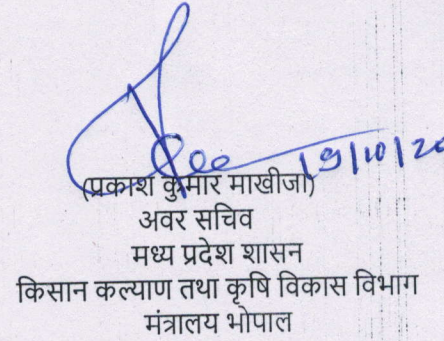 19/10/20
(प्रकाश कुमार माखीजा)
अवर सचिव
मध्य प्रदेश शासन
किसान कल्याण तथा कृषि विकास विभाग
मंत्रालय भोपाल